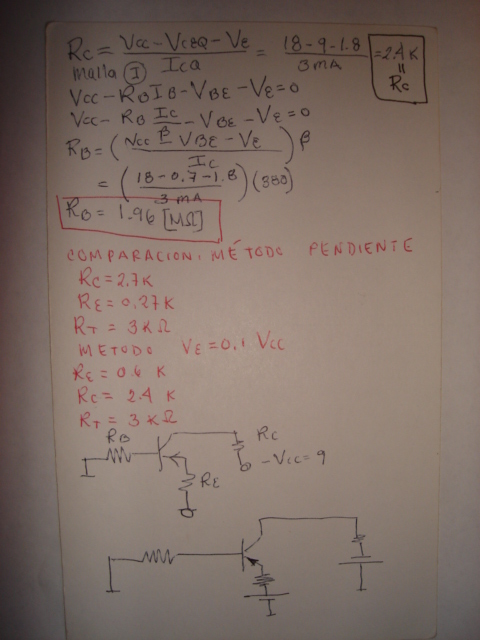 RC = VCC - VCEQ - VE / ICQ = 18 - 9 - 1.8 / 3 mA = 2.4 K = RC
malla I
VCC - RB IB - VBE - VE = 0
VCC - RB IC/β - VBE - VE = 0
RB = (VCC - VBE - VE / IC) β
= (18 - 0.7 - 1.8 / 3 mA)(380)
RB = 1.96 [MΩ]
COMPARACION: MÉTODO PENDIENTE
RC = 2.7 K
RE = 0.27 K
RT = 3 KΩ
METODO VE = 0.1 VCC
RE = 0.6 K
RC = 2.4 K
RT = 3 KΩ
RB
RC
-VCC = 9
RE